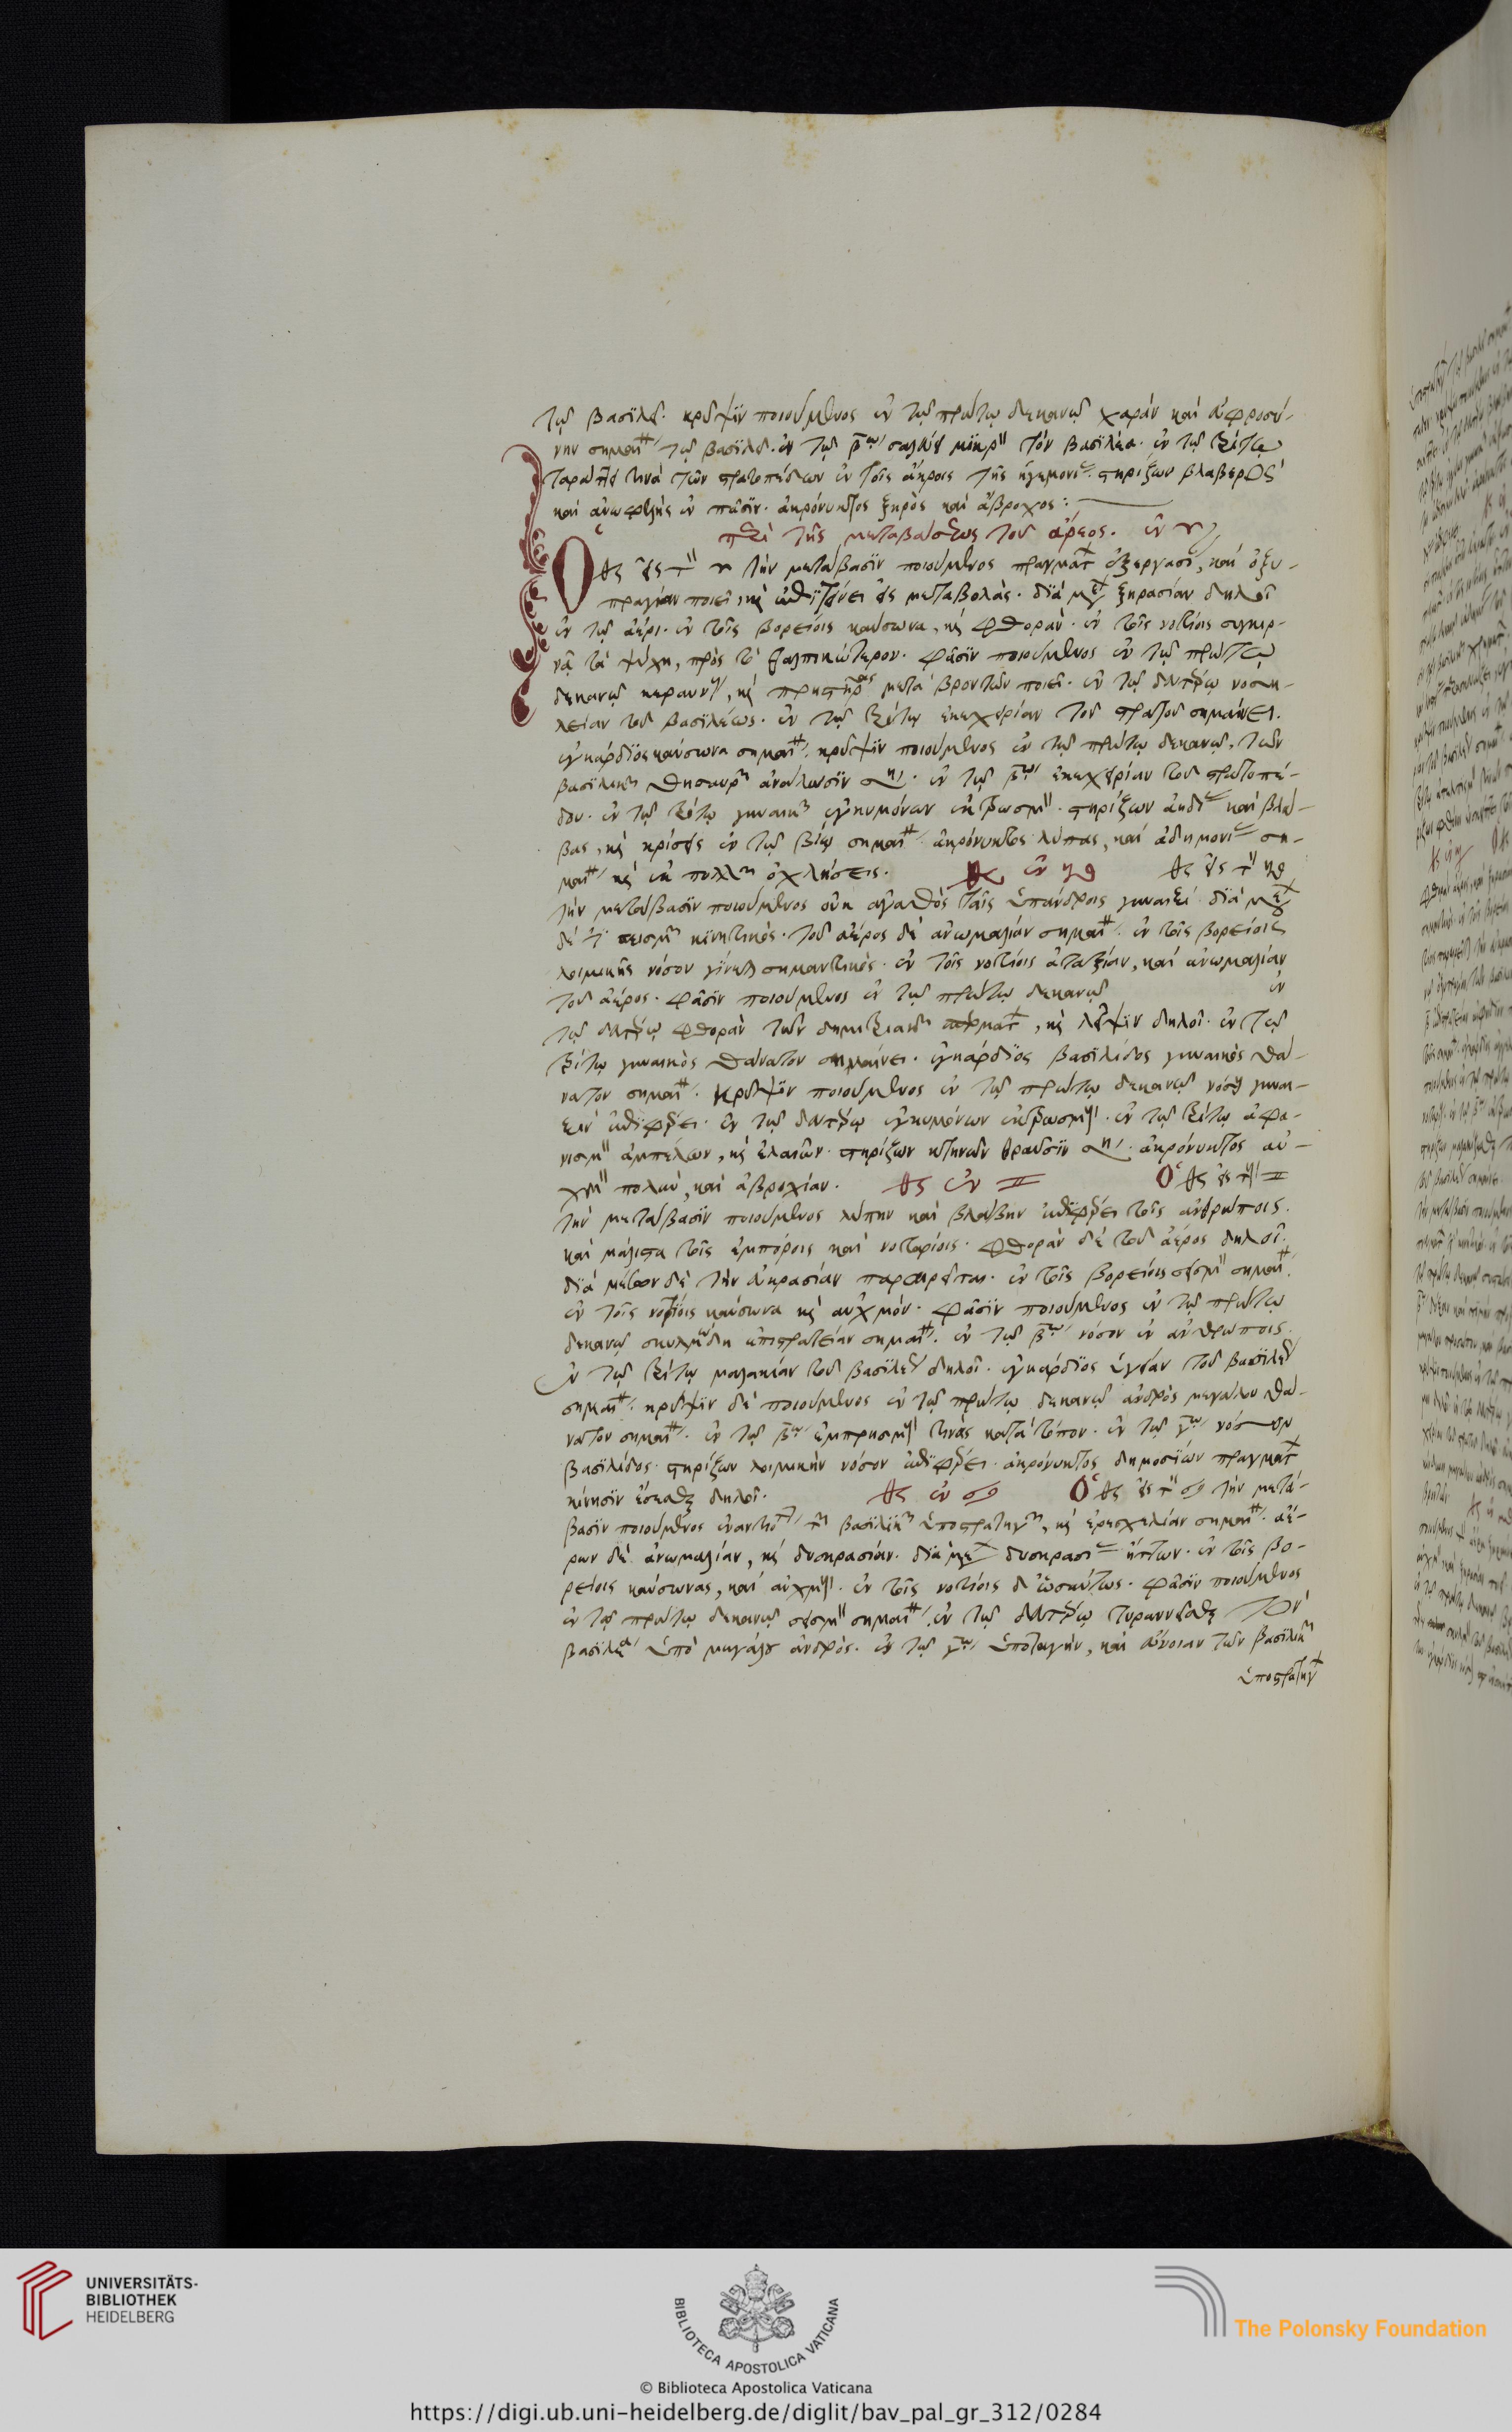 τῷ βασιλεῖ. κρύψιν ποιούμενος ἐν τῷ πρώτῳ δεκανῷ χαρὰν καὶ εὐφροσύ-
νην σημαί τῷ βασιλεῖ. ἐν τῷ βω τὸν βασιλέα. ἐν τῷ τρίτῳ
τινὰ τῶν στρατοπέδων ἐν τοῖς ἄκροις τῆς ἡγεμονι στηρίζων βλαβερὸς
καὶ ἀνωφελὴς ἐν πᾶσιν. ἀκρόνυκτος ξηρὸς καὶ ἄβροχος:
περὶ τῆς μεταβάσεως τοῦ ἄρεος. ἐν ♈
Ὁ ἄρης εἰς τὸν ♈ τὴν μετάβασιν ποιούμενος πραγμάτ , καὶ ὀξυ-
πραγίαν ποιεῖ καὶ μεταβολάς. διὰ μέσ ξηρασίαν δηλοῖ
ἐν τῷ ἀέρι. ἐν τοῖς βορείοις καύσωνα, καὶ φθοράν. ἐν τοῖς νοτίοις συγκιρ-
νᾷ τὰ ψύχη, πρὸς τὸ θαλπικώτερον. φάσιν ποιούμενος ἐν τῷ πρώτῳ
δεκανῷ κεραυν, καὶ πρηστῆρας μετὰ βροντῶν ποιεῖ. ἐν τῷ δευτέρῳ νοση-
λείαν τοῦ βασιλέως. ἐν τῷ τρίτῳ ἐκεχειρίαν τοῦ στρατοῦ σημαίνει.
ἐγκάρδιος καύσωνα σημαί κρύψιν ποιούμενος ἐν τῷ πρώτῳ δεκανῷ, τῶν
βασιλικῶν θησαυρῶν ἀνάλωσιν ἐν τῷ βω ἐκεχειρίαν τοῦ στρατοπέ-
δου. ἐν τῷ τρίτῳ γυναικῶν ἐγκυμόνων ἐκτρωσμ. στηρίζων ἀηδί καὶ βλά-
βας, καὶ κρίσεις ἐν τῷ βίῳ σημαί ἀκρόνυκτος λύπας, καὶ ἀδημονί ση-
μαί καὶ ἐκ πολλῶν ὀχλήσεις. ἄρης ἐν ♉ ἄρης εἰς τὸν ♉
τὴν μετάβασιν ποιούμενος οὐκ ἀγαθὸς ταῖς ὑπάνδροις γυναιξὶ διὰ μέσ
δὲ σεισμῶν κινητικός. τοῦ ἀέρος δὲ ἀνωμαλίαν σημαί. ἐν τοῖς βορείοις
λοιμικῆς νόσου γίνεται σημαντικός. ἐν τοῖς νοτίοις ἀταξίαν, καὶ ἀνωμαλίαν
τοῦ ἀέρος. φάσιν ποιούμενος ἐν τῷ πρώτῳ δεκανῷ ἐν
τῷ δευτέρῳ φθορὰν τῶν , καὶ λεῖψιν δηλοῖ. ἐν τῷ
τρίτῳ γυναικὸς θάνατον σημαίνει. ἐγκάρδιος βασιλίδος γυναικὸς θά-
νατον σημαί. κρύψιν ποιούμενος ἐν τῷ πρώτῳ δεκανῷ νόσον γυναι-
ξὶν ἐπιφέρει. ἐν τῷ δευτέρῳ ἐγκυμόνων ἐκτρωσμ. ἐν τῷ τρίτῳ ἀφα-
νισμ ἀμπέλων, καὶ ἐλαιῶν. στηρίζων κτηνῶν θραῦσιν ἀκρόνυκτος αὐ-
χμ πολὺν, καὶ ἀβροχίαν. ἄρης ἐν ♊ Ὁ ἄρης εἰς τοὺς ♊
τὴν μετάβασιν ποιούμενος λύπην καὶ βλάβην ἐπιφέρει τοῖς ἀνθρώποις.
καὶ μάλιστα τοῖς ἐμπόροις καὶ νοταρίοις. φθορὰν δὲ τοῦ ἀέρος δηλοῖ.
διὰ μέσου δὲ τὴν ἀκρασίαν ἐν τοῖς βορείοις σεισμ σημαί.
ἐν τοῖς νοτίοις καύσωνα καὶ αὐχμόν. φάσιν ποιούμενος ἐν τῷ πρώτῳ
δεκανῷ ἐπιστρατείαν σημαί. ἐν τῷ βω νόσον ἐν ἀνθρώποις.
ἐν τῷ τρίτῳ μαλακίαν τοῦ βασιλέ δηλοῖ. ἐγκάρδιος ὑγείαν τοῦ βασιλέ
σημαί. κρύψιν δὲ ποιούμενος ἐν τῷ πρώτῳ δεκανῷ ἀνδρὸς μεγάλου θά-
νατον σημαί. ἐν τῷ βω ἐμπρησμ τινὰς κατὰ τόπον. ἐν τῷ γω νόσον
βασιλίδος. στηρίζων λοιμικὴν νόσον ἐπιφέρει. ἀκρόνυκτος δημοσίων πραγμάτ
κίνησιν ἔσεσθαι δηλοῖ. ἄρης ἐν ♋ Ὁ ἄρης εἰς τὸν ♋ τὴν μετά-
βασιν ποιούμενος βασιλικῶν ὑποστρατηγ, καὶ ἐρεσχελίαν σημαί. ἀέ-
ρων δὲ ἀνωμαλίαν, καὶ δυσκρασίαν. διὰ μέσ δυσκρασι ἧττον. ἐν τοῖς βο-
ρείοις καύσωνας, καὶ αὐχμ. ἐν τοῖς νοτίοις δ' ὡσαύτως. φάσιν ποιούμενος
ἐν τῷ πρώτῳ δεκανῷ σεισμ σημαί. ἐν τῷ δευτέρῳ τυραννεῖσθαι τὸν
βασιλέα ὑπὸ μεγάλου ἀνδρός. ἐν τῷ γω ὑποταγὴν, καὶ εὔνοιαν τῶν βασιλικ
ὑποστρατηγ
UNIVERSITÄTS-
BIBLIOTHEK
HEIDELBERG
BIBLIOTECA APOSTOLICA VATICANA
The Polonsky Foundation
© Biblioteca Apostolica Vaticana
https://digi.ub.uni-heidelberg.de/diglit/bav_pal_gr_312/0284